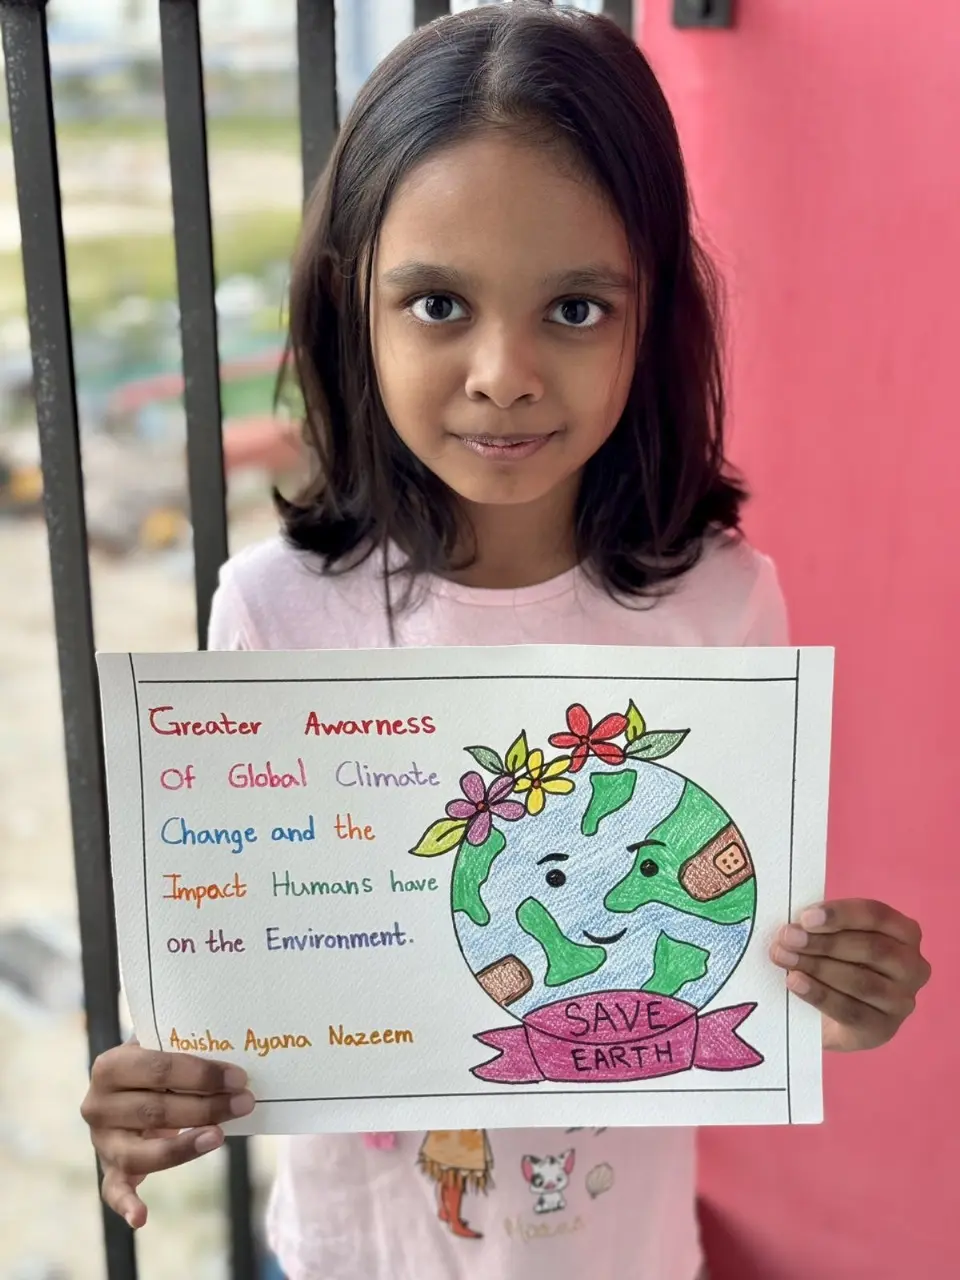 Greater Awarness
Of Global Climate
Change and the
Impact Humans have
on the Environment.
Aaisha Ayana Nazeem
SAVE
EARTH
Moana